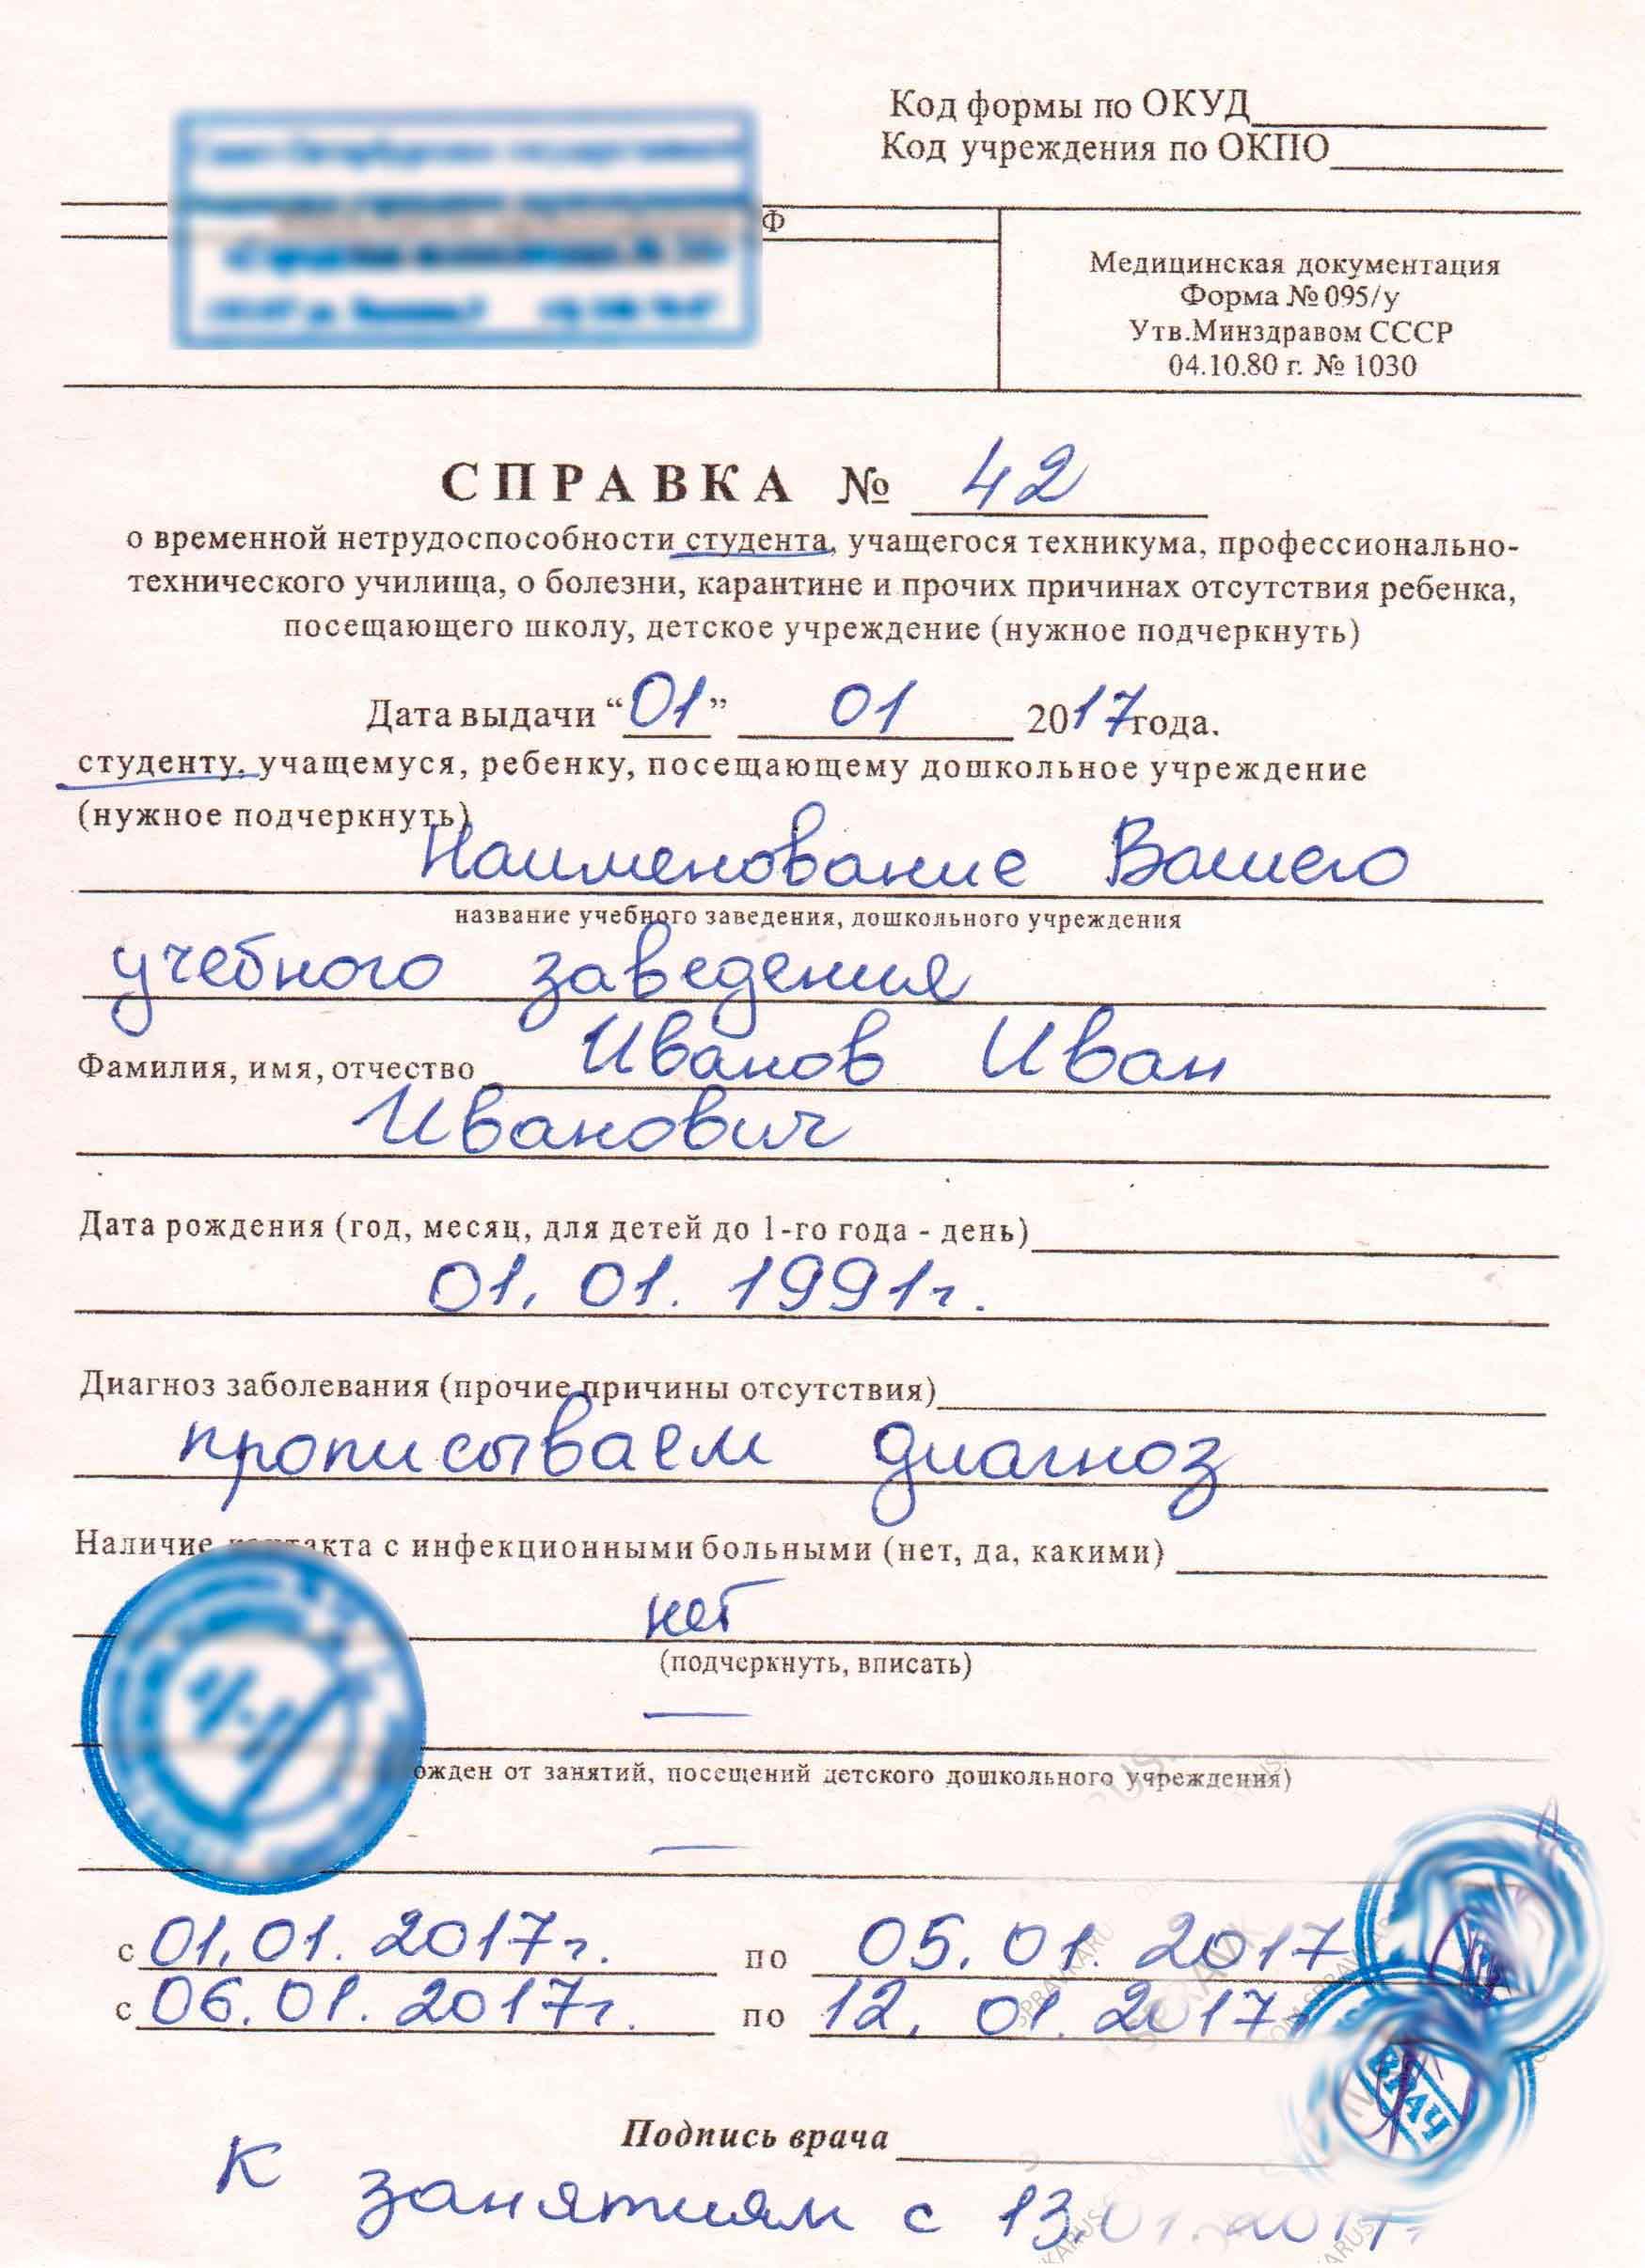 Код формы по ОКУД
Код учреждения по ОКПО
Ф
Медицинская документация
Форма № 095/у
Утв.Минздравом СССР
04.10.80 г. № 1030
СПРАВКА № 42
о временной нетрудоспособности студента, учащегося техникума, профессионально-
технического училища, о болезни, карантине и прочих причинах отсутствия ребенка,
посещающего школу, детское учреждение (нужное подчеркнуть)
Дата выдачи “01” 01 2017 года.
студенту, учащемуся, ребенку, посещающему дошкольное учреждение
(нужное подчеркнуть)
Наименование Вашего
название учебного заведения, дошкольного учреждения
учебного заведения
Фамилия, имя, отчество Иванов Иван
Иванович
Дата рождения (год, месяц, для детей до 1-го года - день)
01.01.1991г.
Диагноз заболевания (прочие причины отсутствия)
прописываем диагноз
Наличие контакта с инфекционными больными (нет, да, какими)
нет
(подчеркнуть, вписать)
—
ожден от занятий, посещений детского дошкольного учреждения)
—
с 01.01.2017г. по 05.01.2017
с 06.01.2017г. по 12.01.2017г
ВРАЧ
Подпись врача
К занятиям с 13.01.2017г.